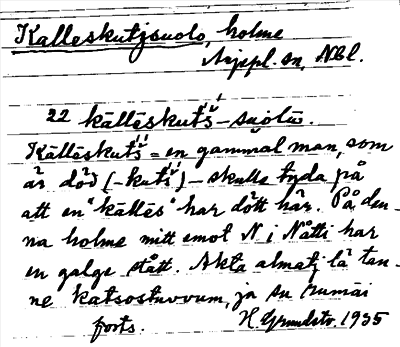 Kalleskutjsuolo, holme
Arjepl. sn, Nbl.
22 kāllēskut́ś-súolū.
Kāllēskut́ś = en gammal man, som
är död (-kut́ś) - skulle tyda på
att en "kāllēs" har dött här. På den-
na holme mitt emot N i Nåtti har
en galge stått. Akta almatj lä tan-
ne katsostuvvum, ja su rumäi
forts. H. Grundstr. 1935